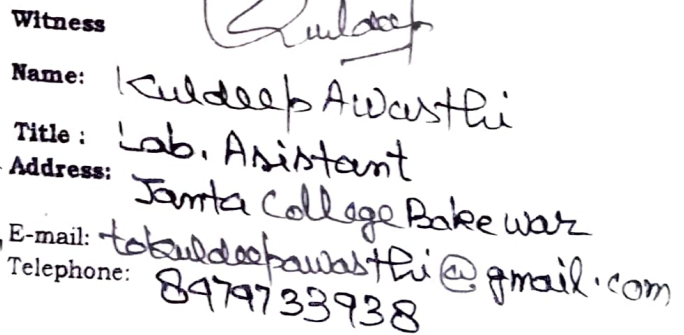 Witness Kuldeep
Name: Kuldeep Awasthi
Title : Lab. Asistant
Address: Janta College Bakewar
E-mail: tokuldeepawasthi@gmail.com
Telephone: 8979733938